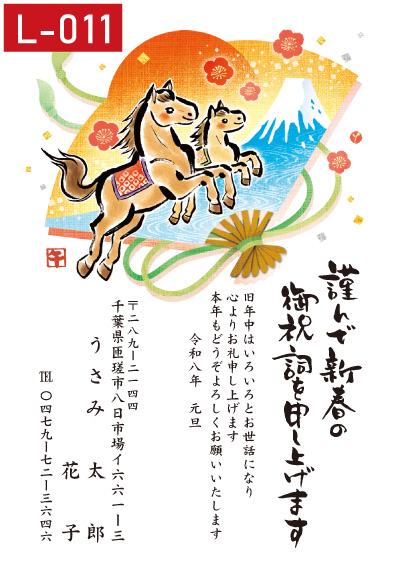 L-011
午
謹んで新春の
御祝詞を申し上げます
旧年中はいろいろとお世話になり
心よりお礼申し上げます
本年もどうぞよろしくお願いいたします
令和八年　元旦
〒二八九ー二一四四
千葉県匝瑳市八日市場イ六六一ー三
うさみ　太郎
花子
℡　〇四七九ー七二ー三六四六